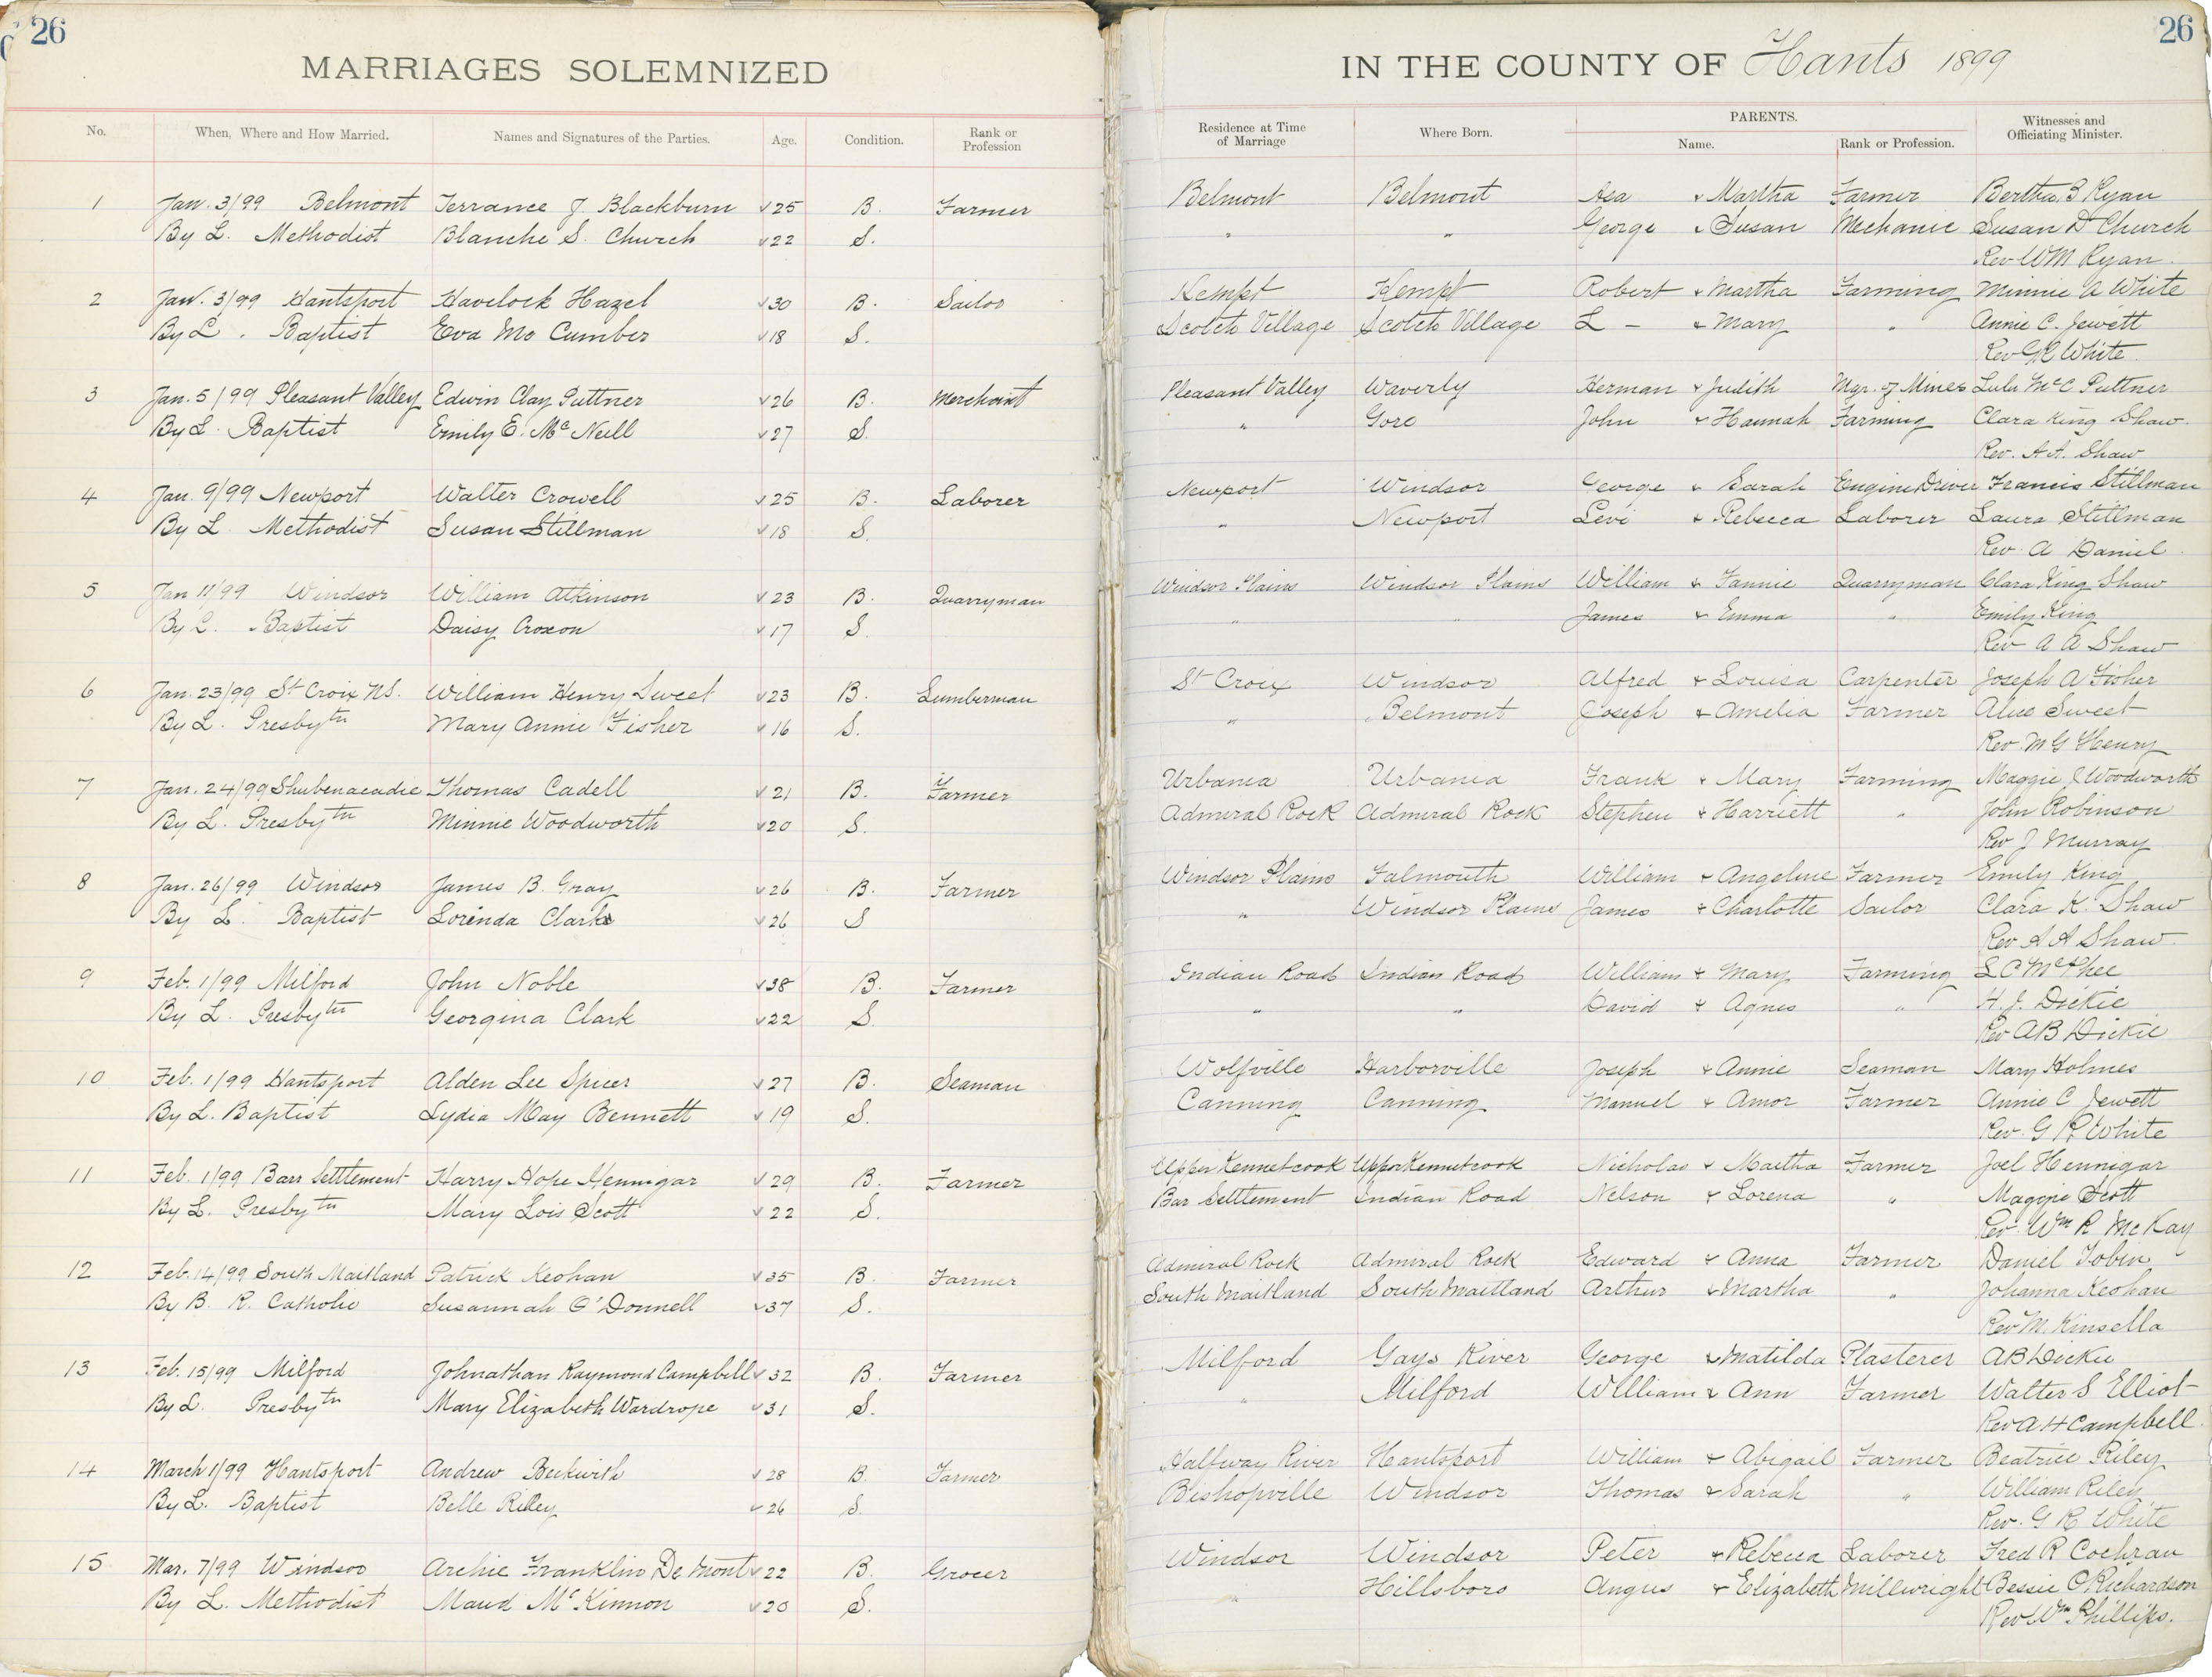 26
MARRIAGES SOLEMNIZED
No. When, Where and How Married. Names and Signatures of the Parties. Age. Condition. Rank or Profession
1 Jan. 3/99 Belmont Terrance J. Blackburn √25 B. Farmer
By L. Methodist Blanche S. Church √22 S.
2 Jan. 3/99 Hantsport Havelock Hazel √30 B. Sailor
By L. Baptist Eva Mc Cumber √18 S.
3 Jan. 5/99 Pleasant Valley Edwin Clay Puttner √26 B. Merchant
By L. Baptist Emily E. McNeill √27 S.
4 Jan. 9/99 Newport Walter Crowell √25 B. Laborer
By L. Methodist Susan Stillman √18 S.
5 Jan 11/99 Windsor William Atkinson √23 B. Quarryman
By L. Baptist Daisy Croxon √17 S.
6 Jan. 23/99 St Croix NS. William Henry Sweet √23 B. Lumberman
By L. Presbytn Mary Annie Fisher √16 S.
7 Jan. 24/99 Shubenacadie Thomas Cadell √21 B. Farmer
By L. Presbytn Minnie Woodworth √20 S.
8 Jan. 26/99 Windsor James B. Gray √26 B. Farmer
By L. Baptist Lorinda Clarke √26 S
9 Feb. 1/99 Milford John Noble √38 B. Farmer
By L. Presbytn Georgina Clark √22 S.
10 Feb. 1/99 Hantsport Alden Lee Spicer √27 B. Seaman
By L. Baptist Lydia May Bennett √19 S.
11 Feb. 1/99 Barr Settlement Harry Hope Hennigar √29 B. Farmer
By L. Presbytn Mary Lois Scott √22 S.
12 Feb. 14/99 South Maitland Patrick Keohan √35 B. Farmer
By B. R. Catholic Susannah O'Donnell √37 S.
13 Feb. 15/99 Milford Johnathan Raymond Campbell √32 B. Farmer
By L. Presbytn Mary Elizabeth Wardrope √31 S.
14 March 1/99 Hantsport Andrew Beckwith √28 B. Farmer
By L. Baptist Belle Riley √26 S.
15 Mar. 7/99 Windsor Archie Franklin De Mont √22 B. Grocer
By L. Methodist Maud McKinnon √20 S.
26
IN THE COUNTY OF Hants 1899
Residence at Time of Marriage Where Born. PARENTS. Name. Rank or Profession. Witnesses and Officiating Minister.
Belmont Belmont Asa & Martha Farmer Bertha B Ryan
" " George & Susan Mechanic Susan D Church
Rev WM Ryan.
Kempt Kempt Robert & Martha Farming Minnie A White
Scotch Village Scotch Village L - & Mary " Annie C. Jewett
Rev GR White.
Pleasant Valley Waverly Herman & Judith Mgr. of Mines Lula McC Puttner
" Gore John & Hannah Farming Clara King Shaw.
Rev. A A. Shaw
Newport Windsor George & Sarah Engine Driver Francis Stillman
" Newport Levi & Rebecca Laborer Laura Stillman
Rev. A Daniel.
Windsor Plains Windsor Plains William & Fannie Quarryman Clara King Shaw
" " James & Emma " Emily King
Rev A A Shaw
St Croix Windsor Alfred & Louisa Carpenter Joseph A Fisher
" Belmont Joseph & Amelia Farmer Alice Sweet
Rev. M G Henry
Urbania Urbania Frank & Mary Farming Maggie J Woodworth
Admiral Rock Admiral Rock Stephen & Harriett " John Robinson
Rev J Murray
Windsor Plains Falmouth William & Angeline Farmer Emily King
" Windsor Plains James & Charlotte Sailor Clara K. Shaw
Rev A A Shaw.
Indian Road Indian Road William & Mary Farming L C McPhee
" " David & Agnes " H. J. Dickie
Rev AB Dickie
Wolfville Harborville Joseph & Annie Seaman Mary Holmes
Canning Canning Manuel & Amor Farmer Annie C Jewett
Rev. G R White
Upper Kennetcook Upper Kennetcook Nicholas & Martha Farmer Joel Hennigar
Bar Settlement Indian Road Nelson & Lorena " Maggie Scott
Rev. Wm R McKay
Admiral Rock Admiral Rock Edward & Anna Farmer Daniel Tobin
South Maitland South Maitland Arthur & Martha " Johanna Keohan
Rev M. Kinsella
Milford Gays River George & Matilda Plasterer AB Dickie
" Milford William & Ann Farmer Walter S Elliot
Rev A H Campbell.
Halfway River Hantsport William & Abigail Farmer Beatrice Riley
Bishopville Windsor Thomas & Sarah " William Riley
Rev. G R White
Windsor Windsor Peter & Rebecca Laborer Fred R Cochran
" Hillsboro Angus & Elizabeth Millwright Bessie O Richardson
Rev Wm Phillips.